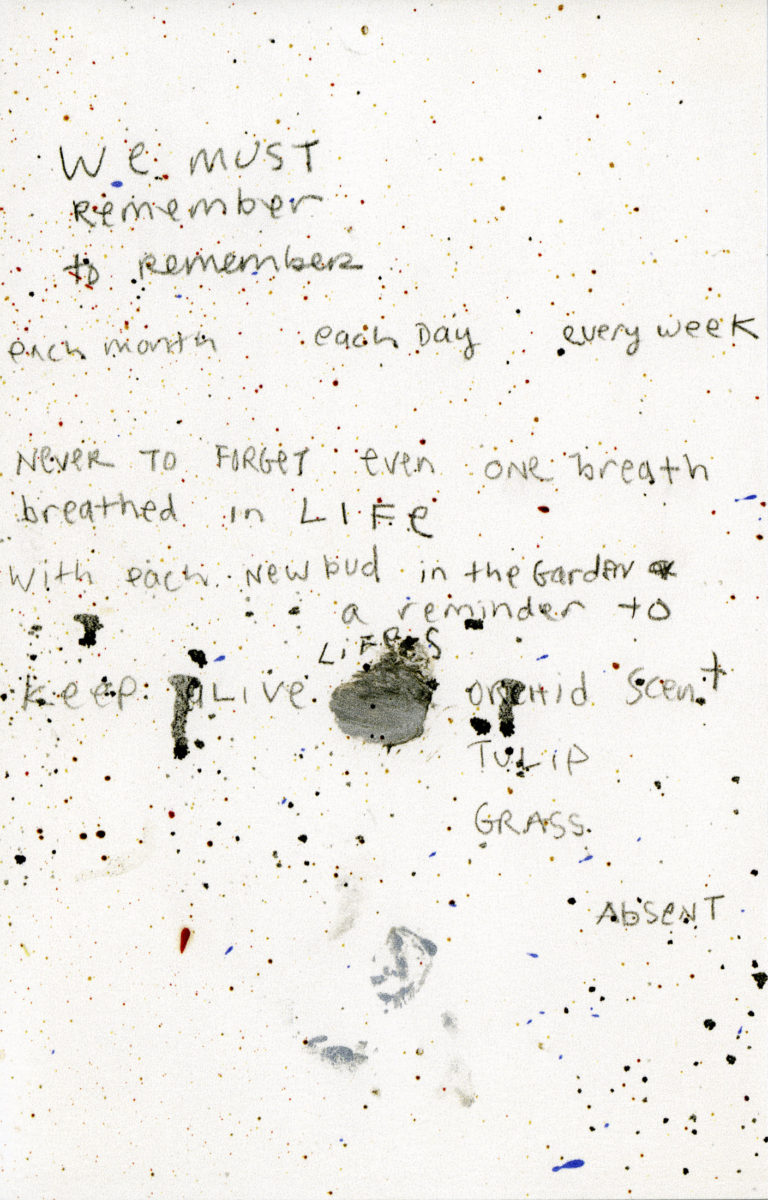 We MUST
Remember
to RemembeR
each month each Day every week
NeveR TO FORGeT even ONe breath
breathed in LIFe
With each New bud in the GardeN
a reminder to
LiFe's
Keep aLive Orchid Scent
TuLip
GRASS
AbseNT